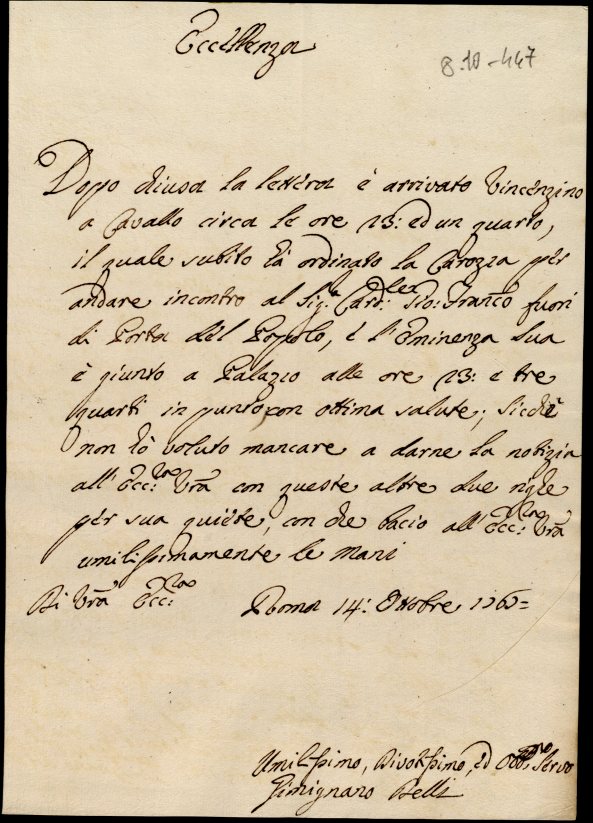 Eccellenza
8.10-447
Dopo chiusa la lettera è arrivato Vincenzino
a Cavallo circa le ore 23: ed un quarto,
il quale subito hà ordinato la Carozza per
andare incontro al Sig.r Card: Gio: Franco fuori
di Porta del Popolo, e l'Eminenza Sua
è giunto a Palazio alle ore 23: e tre
quarti in punto con ottima salute; sicchè
non hò voluto mancare a darne la notizia
all'Ecc:za Vrã con queste altre due righe
per sua quiete, con che bacio all'Ecc:za Vrã
umilissimamente le Mani
Di Vrã Ecc:za Roma 14: Ottobre 176
Umilissimo, Divotissimo, ed Obb:mo Servo
Gimignano Belli